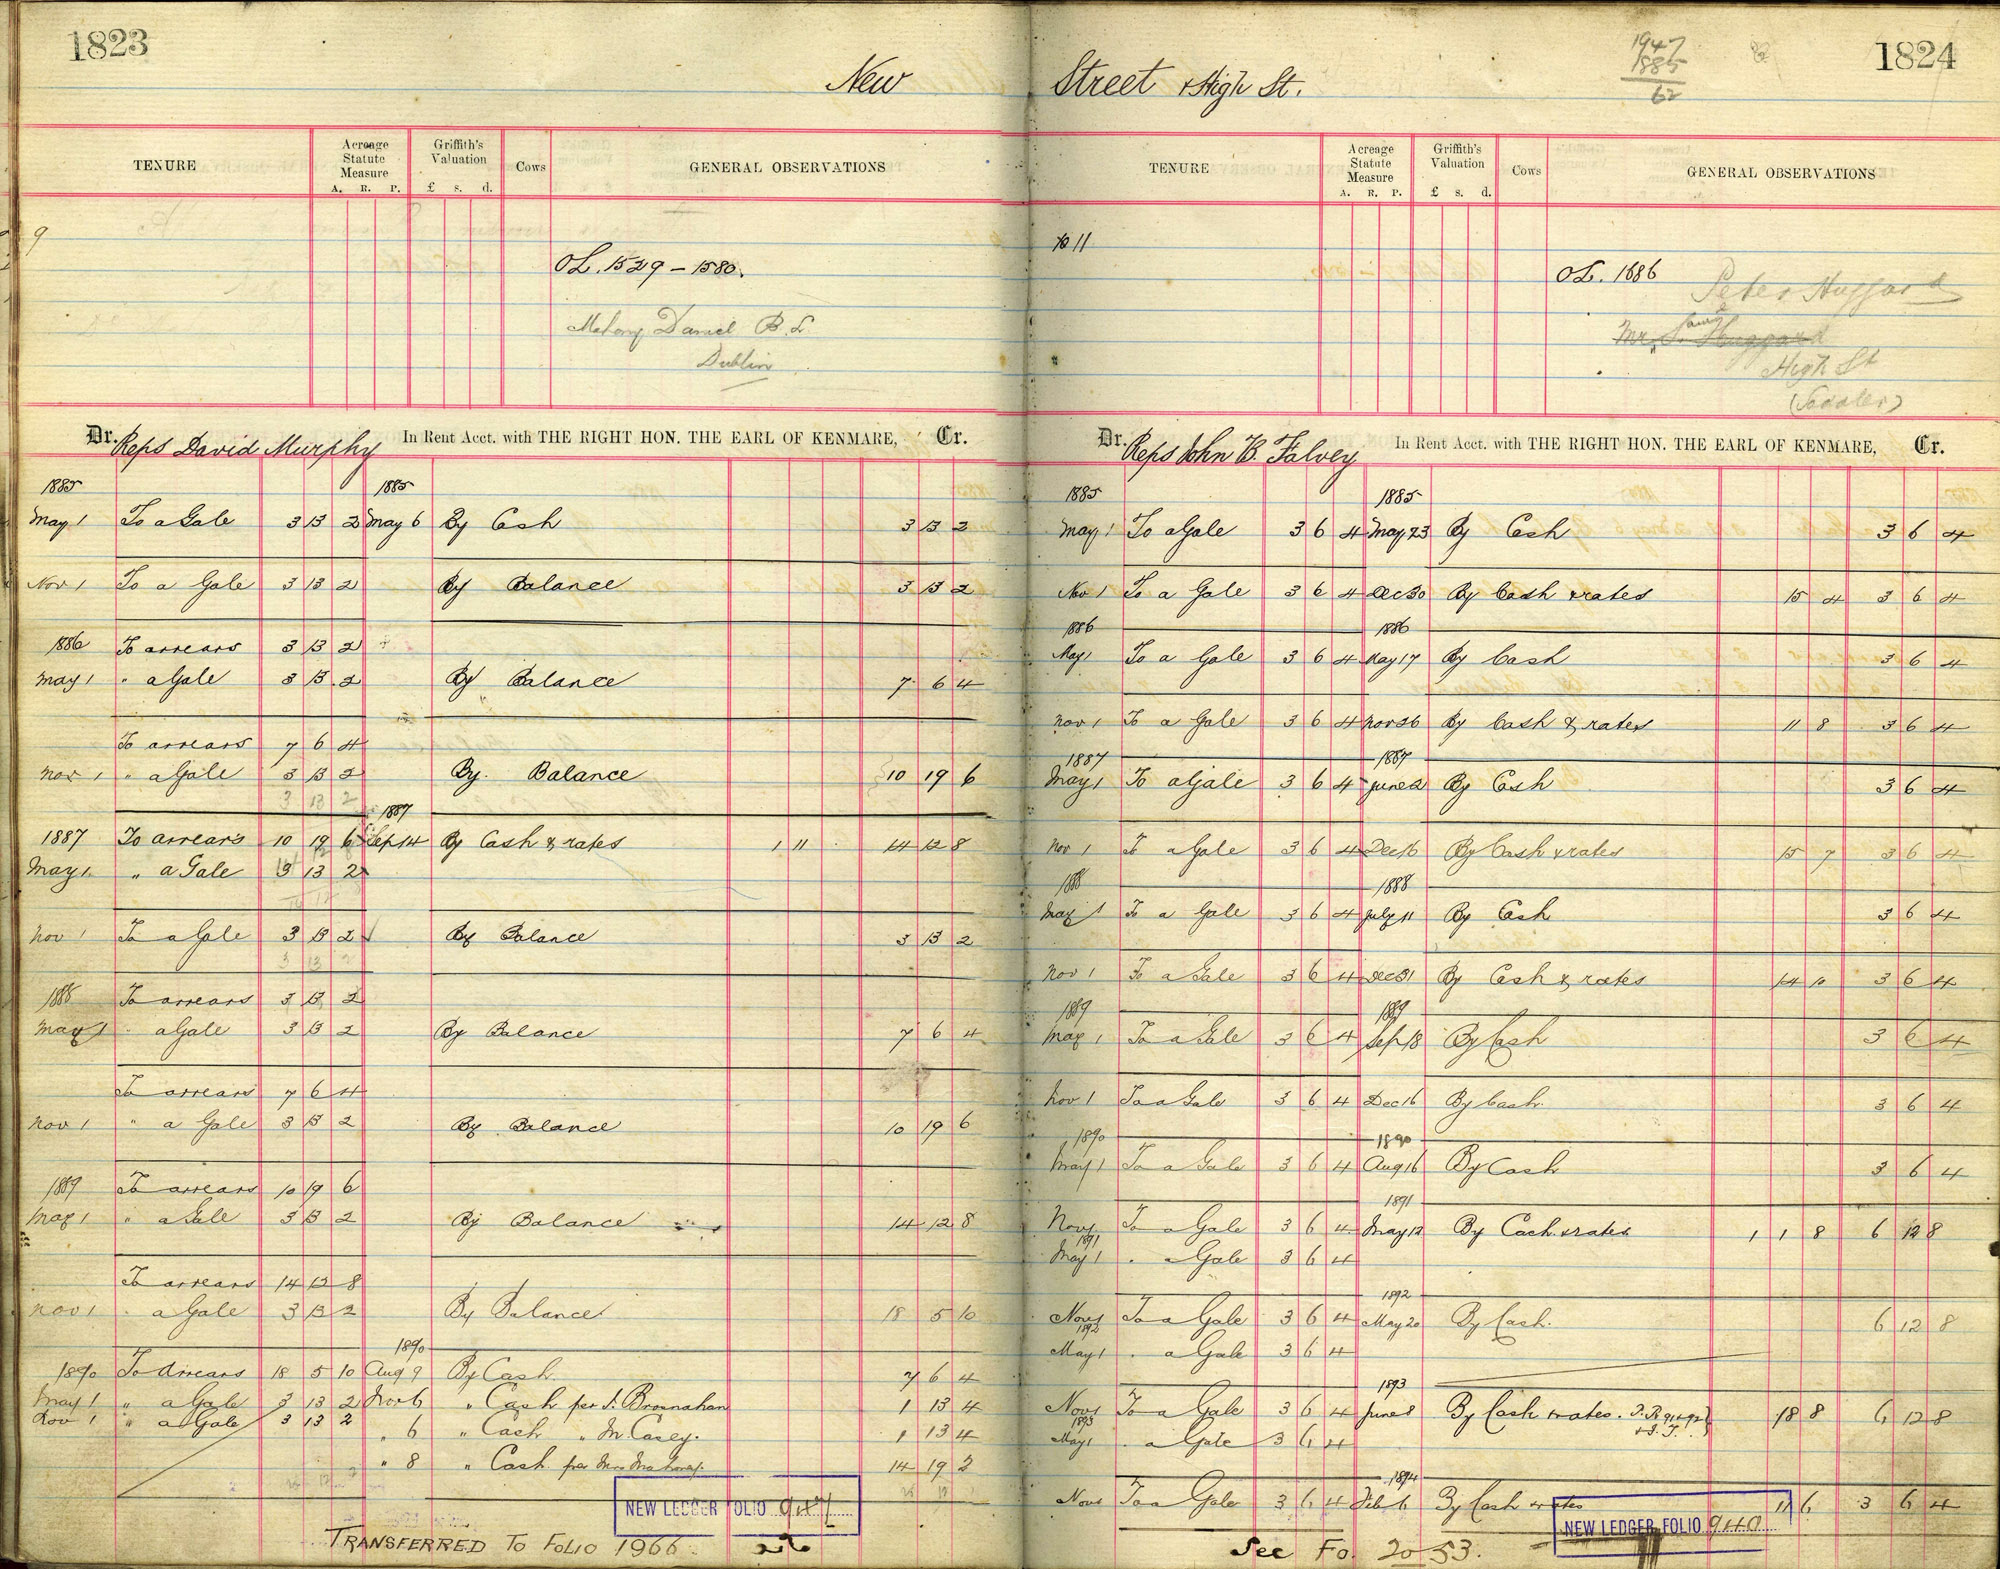 1823
New
TENURE Acreage Statute Measure A. R. P. Griffith's Valuation £ s. d. Cows GENERAL OBSERVATIONS
9
OL. 1529 – 1580.
Daniel B.L.
Dublin
Dr. Reps David Murphy In Rent Acct. with THE RIGHT HON. THE EARL OF KENMARE, Cr.
1885 1885
May 1 To a Gale 3 13 2 May 6 By Cash 3 13 2
Nov 1 To a Gale 3 13 2 By Balance 3 13 2
1886 To arrears 3 13 2
May 1 " a Gale 3 13 2 By Balance 7 6 4
To arrears 7 6 4
Nov 1 " a Gale 3 13 2 By Balance 10 19 6
3 13 2
1887
1887 To arrears 10 19 6 Sep 14 By Cash & rates 1 11 14 12 8
May 1 " a Gale 3 13 2
Nov 1 To a Gale 3 13 2 By Balance 3 13 2
3 13 2
1888 To arrears 3 13 2
May 1 " a Gale 3 13 2 By Balance 7 6 4
To arrears 7 6 4
Nov 1 " a Gale 3 13 2 By Balance 10 19 6
1889 To arrears 10 19 6
May 1 " a Gale 3 13 2 By Balance 14 12 8
To arrears 14 12 8
Nov 1 " a Gale 3 13 2 By Balance 18 5 10
1890
1890 To Arrears 18 5 10 Aug 9 By Cash 7 6 4
May 1 " a Gale 3 13 2 Nov 6 " Cash per J. Brosnahan 1 13 4
Nov 1 " a Gale 3 13 2 " 6 " Cash " M Casey. 1 13 4
" 8 " Cash per Mrs Mahony. 14 19 2
NEW LEDGER FOLIO 941
TRANSFERRED TO FOLIO 1966
1824
Street & High St.
1947
1885
62
TENURE Acreage Statute Measure A. R. P. Griffith's Valuation £ s. d. Cows GENERAL OBSERVATIONS
11
OL. 1686
Peter Huggard
Mr. S. Huggard
High St
(Saddler)
Dr. Reps John B. Falvey In Rent Acct. with THE RIGHT HON. THE EARL OF KENMARE, Cr.
1885 1885
May 1 To a Gale 3 6 4 May 23 By Cash 3 6 4
Nov 1 To a Gale 3 6 4 Dec 30 By Cash & rates 15 4 3 6 4
1886 1886
May 1 To a Gale 3 6 4 May 17 By Cash 3 6 4
Nov 1 To a Gale 3 6 4 Nov 26 By Cash & rates 11 8 3 6 4
1887 1887
May 1 To a Gale 3 6 4 June 2 By Cash 3 6 4
Nov 1 To a Gale 3 6 4 Dec 16 By Cash & rates 15 7 3 6 4
1888 1888
May 1 To a Gale 3 6 4 July 11 By Cash 3 6 4
Nov 1 To a Gale 3 6 4 Dec 31 By Cash & rates 14 10 3 6 4
1889 1889
May 1 To a Gale 3 6 4 Sep 18 By Cash 3 6 4
Nov 1 To a Gale 3 6 4 Dec 16 By Cash. 3 6 4
1890 1890
May 1 To a Gale 3 6 4 Aug 16 By Cash 3 6 4
1891
Nov 1 To a Gale 3 6 4 May 12 By Cash & rates 1 1 8 6 12 8
1891
May 1 " a Gale 3 6 4
1892
Nov 1 To a Gale 3 6 4 May 20 By Cash. 6 12 8
1892
May 1 " a Gale 3 6 4
1893
Nov 1 To a Gale 3 6 4 June 8 By Cash & rates. P.R. 91 & 92 18 8 6 12 8
1893 & I.T.
May 1 " a Gale 3 6 4
1894
Nov 1 To a Gale 3 6 4 Feb 6 By Cash & rates 11 6 3 6 4
NEW LEDGER FOLIO 940
See Fo. 2053.